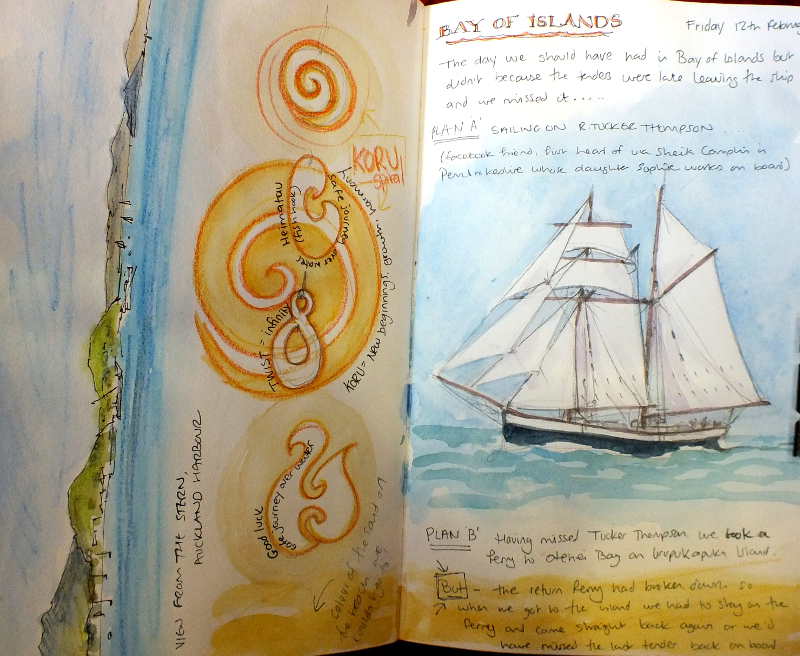 VIEW FROM THE STERN,
AUCKLAND HARBOUR
KORU
Spiral
Heimatau
(fish hook)
safe journey over water
TWIST = infinity
KORU = New beginnings, growth, harmony
Good luck
safe journey over water
colour of the sand on
the beach we
couldn't go to
BAY OF ISLANDS
Friday 12th February
The day we should have had in Bay of Islands but
didn't because the tenders were late leaving the ship
and we missed it.....
PLAN 'A' SAILING ON R. TUCKER THOMPSON
(facebook friend, first heard of via Sheila Camplin in
Pembrokeshire whose daughter Sophie works on board)
PLAN 'B' Having missed Tucker Thompson we took a
ferry to Otehei Bay on Urupukapuka Island.
But - the return ferry had broken down. so
when we got to the island we had to stay on the
ferry and come straight back again or we'd
have missed the last tender back on board